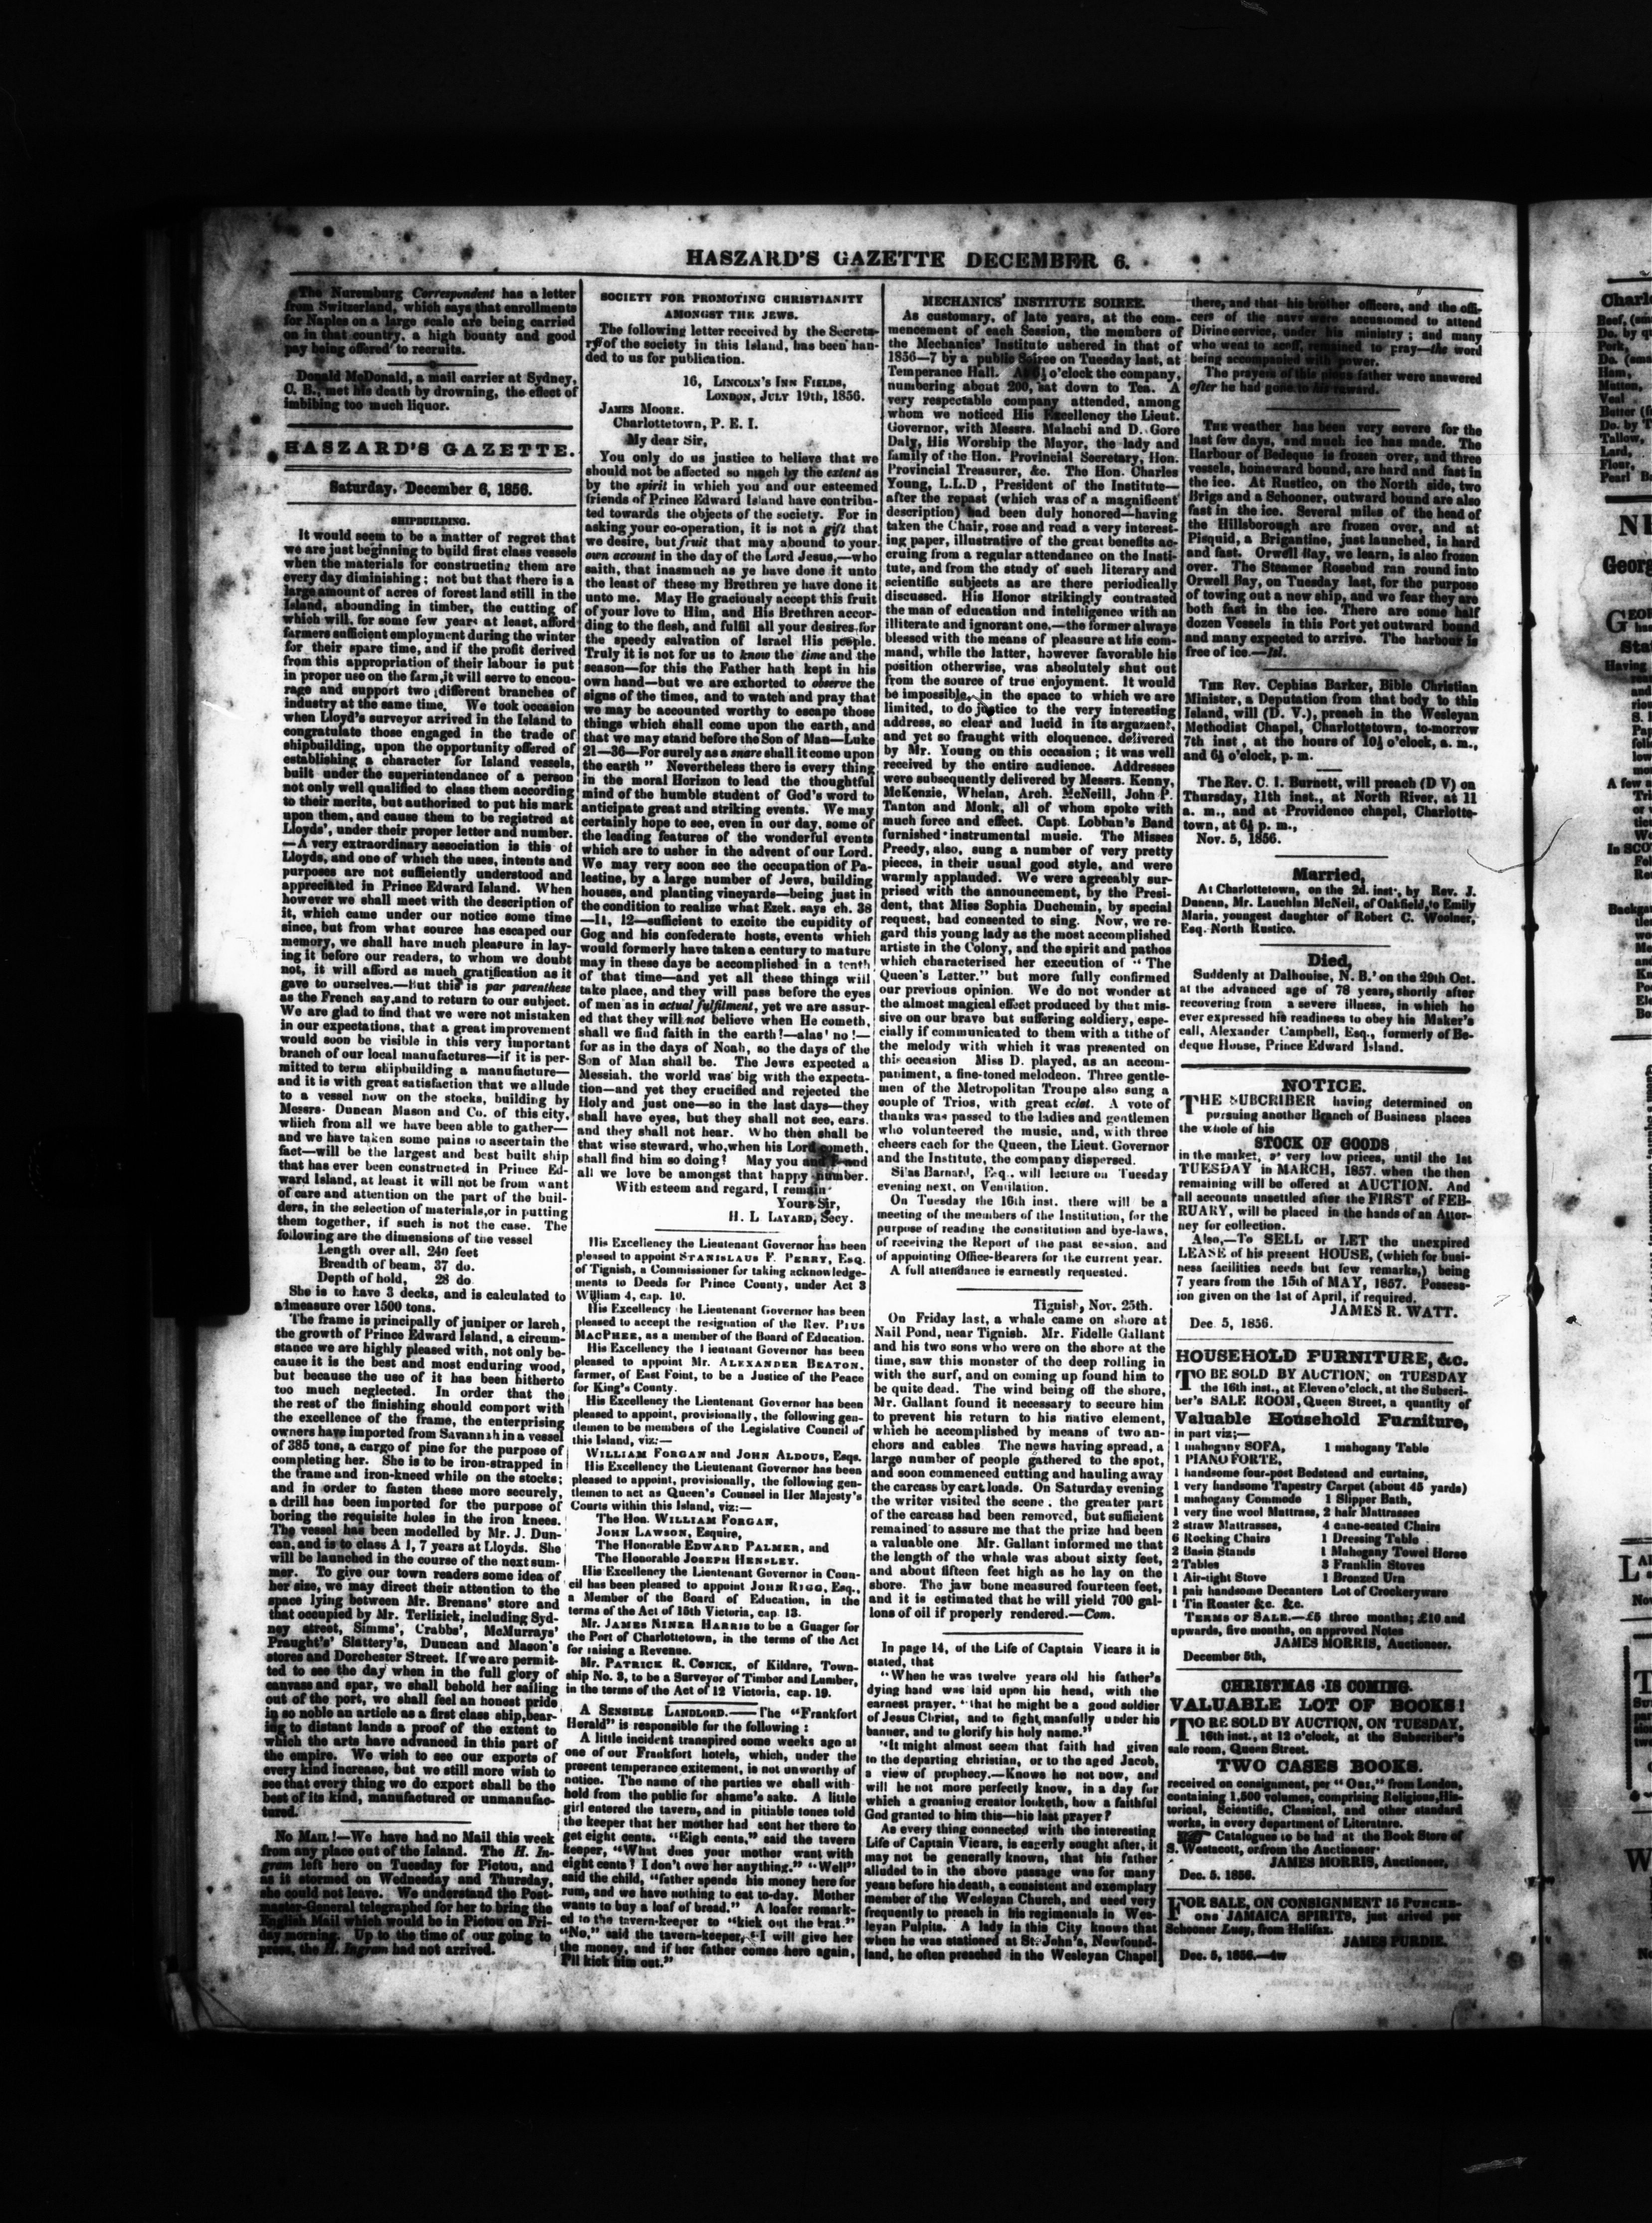 HASZARD'S GAZETTE DECEMBER 6.
The Nuremburg Correspondent has a letter
from Switzerland, which says that enrollments
for Naples on a large scale are being carried
on in that country, a high bounty and good
pay being offered to recruits.
Donald McDonald, a mail carrier at Sydney,
C. B., met his death by drowning, the effect of
imbibing too much liquor.
HASZARD'S GAZETTE.
Saturday, December 6, 1856.
SHIPBUILDING.
It would seem to be a matter of regret that
we are just beginning to build first class vessels
when the materials for constructing them are
every day diminishing; not but that there is a
large amount of acres of forest land still in the
Island, abounding in timber, the cutting of
which will, for some few years at least, afford
farmers sufficient employment during the winter
for their spare time, and if the profit derived
from this appropriation of their labour is put
in proper use on the farm, it will serve to encou-
rage and support two different branches of
industry at the same time. We took occasion
when Lloyd's surveyor arrived in the Island to
congratulate those engaged in the trade of
shipbuilding, upon the opportunity offered of
establishing a character for Island vessels,
built under the superintendance of a person
not only well qualified to class them according
to their merits, but authorised to put his mark
upon them, and cause them to be registered at
Lloyds', under their proper letter and number.
—A very extraordinary association is this of
Lloyds, and one of which the uses, intents and
purposes are not sufficiently understood and
appreciated in Prince Edward Island. When
however we shall meet with the description of
it, which came under our notice some time
since, but from what source has escaped our
memory, we shall have much pleasure in lay-
ing it before our readers, to whom we doubt
not, it will afford as much gratification as it
gave to ourselves.—But this is par parenthese
as the French say, and to return to our subject.
We are glad to find that we were not mistaken
in our expectations, that a great improvement
would soon be visible in this very important
branch of our local manufactures—if it is per-
mitted to term shipbuilding a manufacture—
and it is with great satisfaction that we allude
to a vessel now on the stocks, building by
Messrs. Duncan Mason and Co. of this city,
which from all we have been able to gather—
and we have taken some pains to ascertain the
fact—will be the largest and best built ship
that has ever been constructed in Prince Ed-
ward Island, at least it will not be from want
of care and attention on the part of the buil-
ders, in the selection of materials, or in putting
them together, if such is not the case. The
following are the dimensions of the vessel
Length over all, 240 feet
Breadth of beam, 37 do.
Depth of hold, 28 do
She is to have 3 decks, and is calculated to
admeasure over 1500 tons.
The frame is principally of juniper or larch,
the growth of Prince Edward Island, a circum-
stance we are highly pleased with, not only be-
cause it is the best and most enduring wood,
but because the use of it has been hitherto
too much neglected. In order that the
the rest of the finishing should comport with
the excellence of the frame, the enterprising
owners have imported from Savannah in a vessel
of 385 tons, a cargo of pine for the purpose of
completing her. She is to be iron-strapped in
the frame and iron-kneed while on the stocks;
and in order to fasten these more securely,
a drill has been imported for the purpose of
boring the requisite holes in the iron knees.
The vessel has been modelled by Mr. J. Dun-
can, and is to class A 1, 7 years at Lloyds. She
will be launched in the course of the next sum-
mer. To give our town readers some idea of
her size, we may direct their attention to the
space lying between Mr. Brenans' store and
that occupied by Mr. Terlizick, including Syd-
ney street, Simms', Crabbs', McMurrays'
Praught's' Slattery's, Duncan and Mason's
stores and Dorchester Street. If we are permit-
ted to see the day when in the full glory of
canvass and spar, we shall behold her sailing
out of the port, we shall feel an honest pride
in so noble an article as a first class ship, bear-
ing to distant lands a proof of the extent to
which the arts have advanced in this part of
the empire. We wish to see our exports of
every kind increase, but we still more wish to
see that every thing we do export shall be the
best of its kind, manufactured or unmanufac-
tured.
NO MAIL!—We have had no Mail this week
from any place out of the Island. The H. In-
gram left here on Tuesday for Pictou, and
as it stormed on Wednesday and Thursday,
she could not leave. We understand the Post-
master-General telegraphed for her to bring the
English Mail which would be in Pictou on Fri-
day morning. Up to the time of our going to
press, the H. Ingram had not arrived.
SOCIETY FOR PROMOTING CHRISTIANITY
AMONGST THE JEWS.
The following letter received by the Secreta-
ry of the society in this Island, has been han-
ded to us for publication.
16, LINCOLN'S INN FIELDS,
LONDON, JULY 19th, 1856.
JAMES MOORE.
Charlottetown, P. E. I.
My dear Sir,
You only do us justice to believe that we
should not be affected so much by the extent as
by the spirit in which you and our esteemed
friends of Prince Edward Island have contribu-
ted towards the objects of the society. For in
asking your co-operation, it is not a gift that
we desire, but fruit that may abound to your
own account in the day of the Lord Jesus,—who
saith, that inasmuch as ye have done it unto
the least of these my Brethren ye have done it
unto me. May He graciously accept this fruit
of your love to Him, and His Brethren accor-
ding to the flesh, and fulfil all your desires for
the speedy salvation of Israel His people.
Truly it is not for us to know the time and the
season—for this the Father hath kept in his
own hand—but we are exhorted to observe the
signs of the times, and to watch and pray that
we may be accounted worthy to escape those
things which shall come upon the earth, and
that we may stand before the Son of Man—Luke
21—36—For surely as a snare shall it come upon
the earth" Nevertheless there is every thing
in the moral Horizon to lead the thoughtful
mind of the humble student of God's word to
anticipate great and striking events. We may
certainly hope to see, even in our day, some of
the leading features of the wonderful events
which are to usher in the advent of our Lord.
We may very soon see the occupation of Pa-
lestine, by a large number of Jews, building
houses, and planting vineyards—being just in
the condition to realize what Ezek. says ch. 38
—11, 12—sufficient to excite the cupidity of
Gog and his confederate hosts, events which
would formerly have taken a century to mature
may in these days be accomplished in a tenth
of that time—and yet all these things will
take place, and they will pass before the eyes
of men as in actual fulfilment, yet we are assur-
ed that they will not believe when He cometh,
shall we find faith in the earth!—alas' no!—
for as in the days of Noah, so the days of the
Son of Man shall be. The Jews expected a
Messiah, the world was big with the expecta-
tion—and yet they crucified and rejected the
Holy and just one—so in the last days—they
shall have eyes, but they shall not see, ears,
and they shall not hear. Who then shall be
that wise steward, who, when his Lord cometh,
shall find him so doing! May you and I and
all we love be amongst that happy number.
With esteem and regard, I remain
Yours Sir,
H. L LAYARD, Secy.
His Excellency the Lieutenant Governor has been
pleased to appoint STANISLAUS F. PERRY, Esq.
of Tignish, a Commissioner for taking acknowledge-
ments to Deeds for Prince County, under Act 3
William 4, cap. 10.
His Excellency the Lieutenant Governor has been
pleased to accept the resignation of the Rev. PIUS
MACPHEE, as a member of the Board of Education.
His Excellency the Lieutenant Governor has been
pleased to appoint Mr. ALEXANDER BEATON,
farmer, of East Point, to be a Justice of the Peace
for King's County.
His Excellency the Lieutenant Governor has been
pleased to appoint, provisionally, the following gen-
tlemen to be members of the Legislative Council of
this Island, viz:—
WILLIAM FORGAN and JOHN ALDOUS, Esqs.
His Excellency the Lieutenant Governor has been
pleased to appoint, provisionally, the following gen-
tlemen to act as Queen's Counsel in Her Majesty's
Courts within this Island, viz:—
The Hon. WILLIAM FORGAN,
JOHN LAWSON, Esquire,
The Honorable EDWARD PALMER, and
The Honorable JOSEPH HENSLEY.
His Excellency the Lieutenant Governor in Coun-
cil has been pleased to appoint JOHN RIGG, Esq.,
a Member of the Board of Education, in the
terms of the Act of 15th Victoria, cap. 13.
Mr. JAMES NINER HARRIS to be a Guager for
the Port of Charlottetown, in the terms of the Act
for raising a Revenue.
Mr. PATRICK R. CONICK, of Kildare, Town-
ship No. 3, to be a Surveyor of Timber and Lumber,
in the terms of the Act of 12 Victoria, cap. 19.
A SENSIBLE LANDLORD.—The "Frankfort
Herald" is responsible for the following:
A little incident transpired some weeks ago at
one of our Frankfort hotels, which, under the
present temperance exitement, is not unworthy of
notice. The name of the parties we shall with-
hold from the public for shame's sake. A little
girl entered the tavern, and in pitiable tones told
the keeper that her mother had sent her there to
get eight cents. "Eigh cents," said the tavern
keeper, "What does your mother want with
eight cents? I don't owe her anything." "Well"
said the child, "father spends his money here for
rum, and we have nothing to eat to-day. Mother
wants to buy a loaf of bread." A loafer remark-
ed to the tavern-keeper to "kick out the brat."
"No," said the tavern-keeper, "I will give her
the money, and if her father comes here again,
I'll kick him out."
MECHANICS' INSTITUTE SOIREE.
As customary, of late years, at the com-
mencement of each Session, the members of
the Mechanics' Institute ushered in that of
1856—7 by a public Soiree on Tuesday last, at
Temperance Hall. At o'clock the company,
numbering about 200, sat down to Tea. A
very respectable company attended, among
whom we noticed His Excellency the Lieut.
Governor, with Messrs. Malachi and D. Gore
Daly, His Worship the Mayor, the lady and
family of the Hon. Provincial Secretary, Hon.
Provincial Treasurer, &c. The Hon. Charles
Young, L.L.D, President of the Institute—
after the repast (which was of a magnificent
description) had been duly honored—having
taken the Chair, rose and read a very interest-
ing paper, illustrative of the great benefits ac-
cruing from a regular attendance on the Insti-
tute, and from the study of such literary and
scientific subjects as are there periodically
discussed. His Honor strikingly contrasted
the man of education and intelligence with an
illiterate and ignorant one,—the former always
blessed with the means of pleasure at his com-
mand, while the latter, however favorable his
position otherwise, was absolutely shut out
from the source of true enjoyment. It would
be impossible, in the space to which we are
limited, to do justice to the very interesting
address, so clear and lucid in its argument,
and yet so fraught with eloquence, delivered
by Mr. Young on this occasion; it was well
received by the entire audience. Addresses
were subsequently delivered by Messrs. Kenny,
McKenzie, Whelan, Arch. McNeill, John P.
Tanton and Monk, all of whom spoke with
much force and effect. Capt. Lobban's Band
furnished instrumental music. The Misses
Preedy, also, sung a number of very pretty
pieces, in their usual good style, and were
warmly applauded. We were agreeably sur-
prised with the announcement, by the Presi-
dent, that Miss Sophia Duchemin, by special
request, had consented to sing. Now, we re-
gard this young lady as the most accomplished
artiste in the Colony, and the spirit and pathos
which characterised her execution of "The
Queen's Letter." but more fully confirmed
our previous opinion. We do not wonder at
the almost magical effect produced by that mis-
sive on our brave but suffering soldiery, espe-
cially if communicated to them with a tithe of
the melody with which it was presented on
this occasion Miss D. played, as an accom-
paniment, a fine-toned melodeon. Three gentle-
men of the Metropolitan Troupe also sung a
couple of Trios, with great eclat. A vote of
thanks was passed to the ladies and gentlemen
who volunteered the music, and, with three
cheers each for the Queen, the Lieut. Governor
and the Institute, the company dispersed.
Silas Barnard, Esq., will lecture on Tuesday
evening next, on Ventilation.
On Tuesday the 16th inst. there will be a
meeting of the members of the Institution, for the
purpose of reading the constitution and bye-laws,
of receiving the Report of the past session, and
of appointing Office-Bearers for the current year.
A full attendance is earnestly requested.
Tignish, Nov. 25th.
On Friday last, a whale came on shore at
Nail Pond, near Tignish. Mr. Fidelle Gallant
and his two sons who were on the shore at the
time, saw this monster of the deep rolling in
with the surf, and on coming up found him to
be quite dead. The wind being off the shore,
Mr. Gallant found it necessary to secure him
to prevent his return to his native element,
which he accomplished by means of two an-
chors and cables. The news having spread, a
large number of people gathered to the spot,
and soon commenced cutting and hauling away
the carcass by cart loads. On Saturday evening
the writer visited the scene, the greater part
of the carcass had been removed, but sufficient
remained to assure me that the prize had been
a valuable one Mr. Gallant informed me that
the length of the whale was about sixty feet,
and about fifteen feet high as he lay on the
shore. The jaw bone measured fourteen feet,
and it is estimated that he will yield 700 gal-
lons of oil if properly rendered.—Com.
In page 14, of the Life of Captain Vicars it is
stated, that
"When he was twelve years old his father's
dying hand was laid upon his head, with the
earnest prayer, "that he might be a good soldier
of Jesus Christ, and to fight manfully under his
banner, and to glorify his holy name."
"It might almost seem that faith had given
to the departing christian, or to the aged Jacob,
a view of prophecy.—Knows he not now, and
will he not more perfectly know, in a day for
which a groaning creator looketh, how a faithful
God granted to him this—his last prayer?
As every thing connected with the interesting
Life of Captain Vicars, is eagerly sought after, it
may not be generally known, that his father
alluded to in the above passage was for many
years before his death, a consistent and exemplary
member of the Wesleyan Church, and used very
frequently to preach in his regimentals in Wes-
leyan Pulpits. A lady in this City knows that
when he was stationed at St. John's, Newfound-
land, he often preached in the Wesleyan Chapel
there, and that his brother officers, and the offi-
cers of the navy were accustomed to attend
Divine service, under his ministry; and many
who went to scoff, remained to pray—the word
being accompanied with power.
The prayers of this pious father were answered
after he had gone to his reward.
THE weather has been very severe for the
last few days, and much ice has made. The
Harbour of Bedeque is frozen over, and three
vessels, homeward bound, are hard and fast in
the ice. At Rustico, on the North side, two
Brigs and a Schooner, outward bound are also
fast in the ice. Several miles of the head of
the Hillsborough are frozen over, and at
Pisquid, a Brigantine, just launched, is hard
and fast. Orwell Bay, we learn, is also frozen
over. The Steamer Rosebud ran round into
Orwell Bay, on Tuesday last, for the purpose
of towing out a new ship, and we fear they are
both fast in the ice. There are some half
dozen Vessels in this Port yet outward bound
and many expected to arrive. The harbour is
free of ice.—Isl.
THE Rev. Cephias Barker, Bible Christian
Minister, a Deputation from that body to this
Island, will (D. V.), preach in the Wesleyan
Methodist Chapel, Charlottetown, to-morrow
7th inst, at the hours of 10½ o'clock, a. m.,
and 6½ o'clock, p. m.
The Rev. C. I. Burnett, will preach (D V) on
Thursday, 11th inst., at North River, at 11
a. m., and at Providence chapel, Charlotte-
town, at 6½ p. m.,
Nov. 5, 1856.
Married,
At Charlottetown, on the 2d. inst., by Rev. J.
Duncan, Mr. Lauchlan McNeil, of Oakfield, to Emily
Maria, youngest daughter of Robert C. Woolner,
Esq. North Rustico.
Died,
Suddenly at Dalhouise, N. B.' on the 29th Oct.
at the advanced age of 78 years, shortly after
recovering from a severe illness, in which he
ever expressed his readiness to obey his Maker's
call, Alexander Campbell, Esq., formerly of Be-
deque House, Prince Edward Island.
NOTICE.
THE SUBCRIBER having determined on
pursuing another Branch of Business places
the whole of his
STOCK OF GOODS
in the market, at very low prices, until the 1st
TUESDAY in MARCH, 1857. when the then
remaining will be offered at AUCTION. And
all accounts unsettled after the FIRST of FEB-
RUARY, will be placed in the hands of an Attor-
ney for collection.
Also,—To SELL or LET the unexpired
LEASE of his present HOUSE, (which for busi-
ness facilities needs but few remarks,) being
7 years from the 15th of MAY, 1857. Possess-
ion given on the 1st of April, if required.
JAMES R. WATT.
Dec 5, 1856.
HOUSEHOLD FURNITURE, &c.
TO BE SOLD BY AUCTION, on TUESDAY
the 16th inst., at Eleven o'clock, at the Subscri-
ber's SALE ROOM, Queen Street, a quantity of
Valuable Household Furniture,
in part viz;—
1 mahogany SOFA, 1 mahogany Table
1 PIANO FORTE,
1 handsome four-post Bedstead and curtains,
1 very handsome Tapestry Carpet (about 45 yards)
1 mahogany Commode 1 Slipper Bath,
1 very fine wool Mattrass, 2 hair Mattrasses
2 straw Mattrasses, 4 cane-seated Chairs
6 Rocking Chairs 1 Dressing Table
2 Basin Stands 1 Mahogany Towel Horse
2 Tables 3 Franklin Stoves
1 Air-tight Stove 1 Bronzed Urn
1 pair handsome Decanters Lot of Crockeryware
1 Tin Roaster &c. &c.
TERMS OF SALE.—£5 three months; £10 and
upwards, five months, on approved Notes
JAMES MORRIS, Auctioneer.
December 5th,
CHRISTMAS IS COMING.
VALUABLE LOT OF BOOKS!
TO BE SOLD BY AUCTION, ON TUESDAY,
16th inst., at 12 o'clock, at the Subscriber's
sale room, Queen Street.
TWO CASES BOOKS.
received on consignment, per from London,
containing 1,500 volumes, comprising Religious, His-
torical, Scientific, Classical, and other standard
works, in every department of Literature.
Catalogues to be had at the Book Store of
S. Westacott, or from the Auctioneer
JAMES MORRIS, Auctioneer,
Dec. 5. 1856.
FOR SALE, ON CONSIGNMENT 15 PUNCHE-
ons JAMAICA SPIRITS, just arived per
Schooner from Halifax.
JAMES PURDIE.
Dec. 5, 1856.—4w
Charl
Beef, (sma
Do. by q
Pork,
Do. (sma
Ham,
Mutton,
Veal
Butter (f
Do. by T
Tallow,
Lard,
Flour,
Pearl B
Georg
Having
A few a
In SCO
Backga